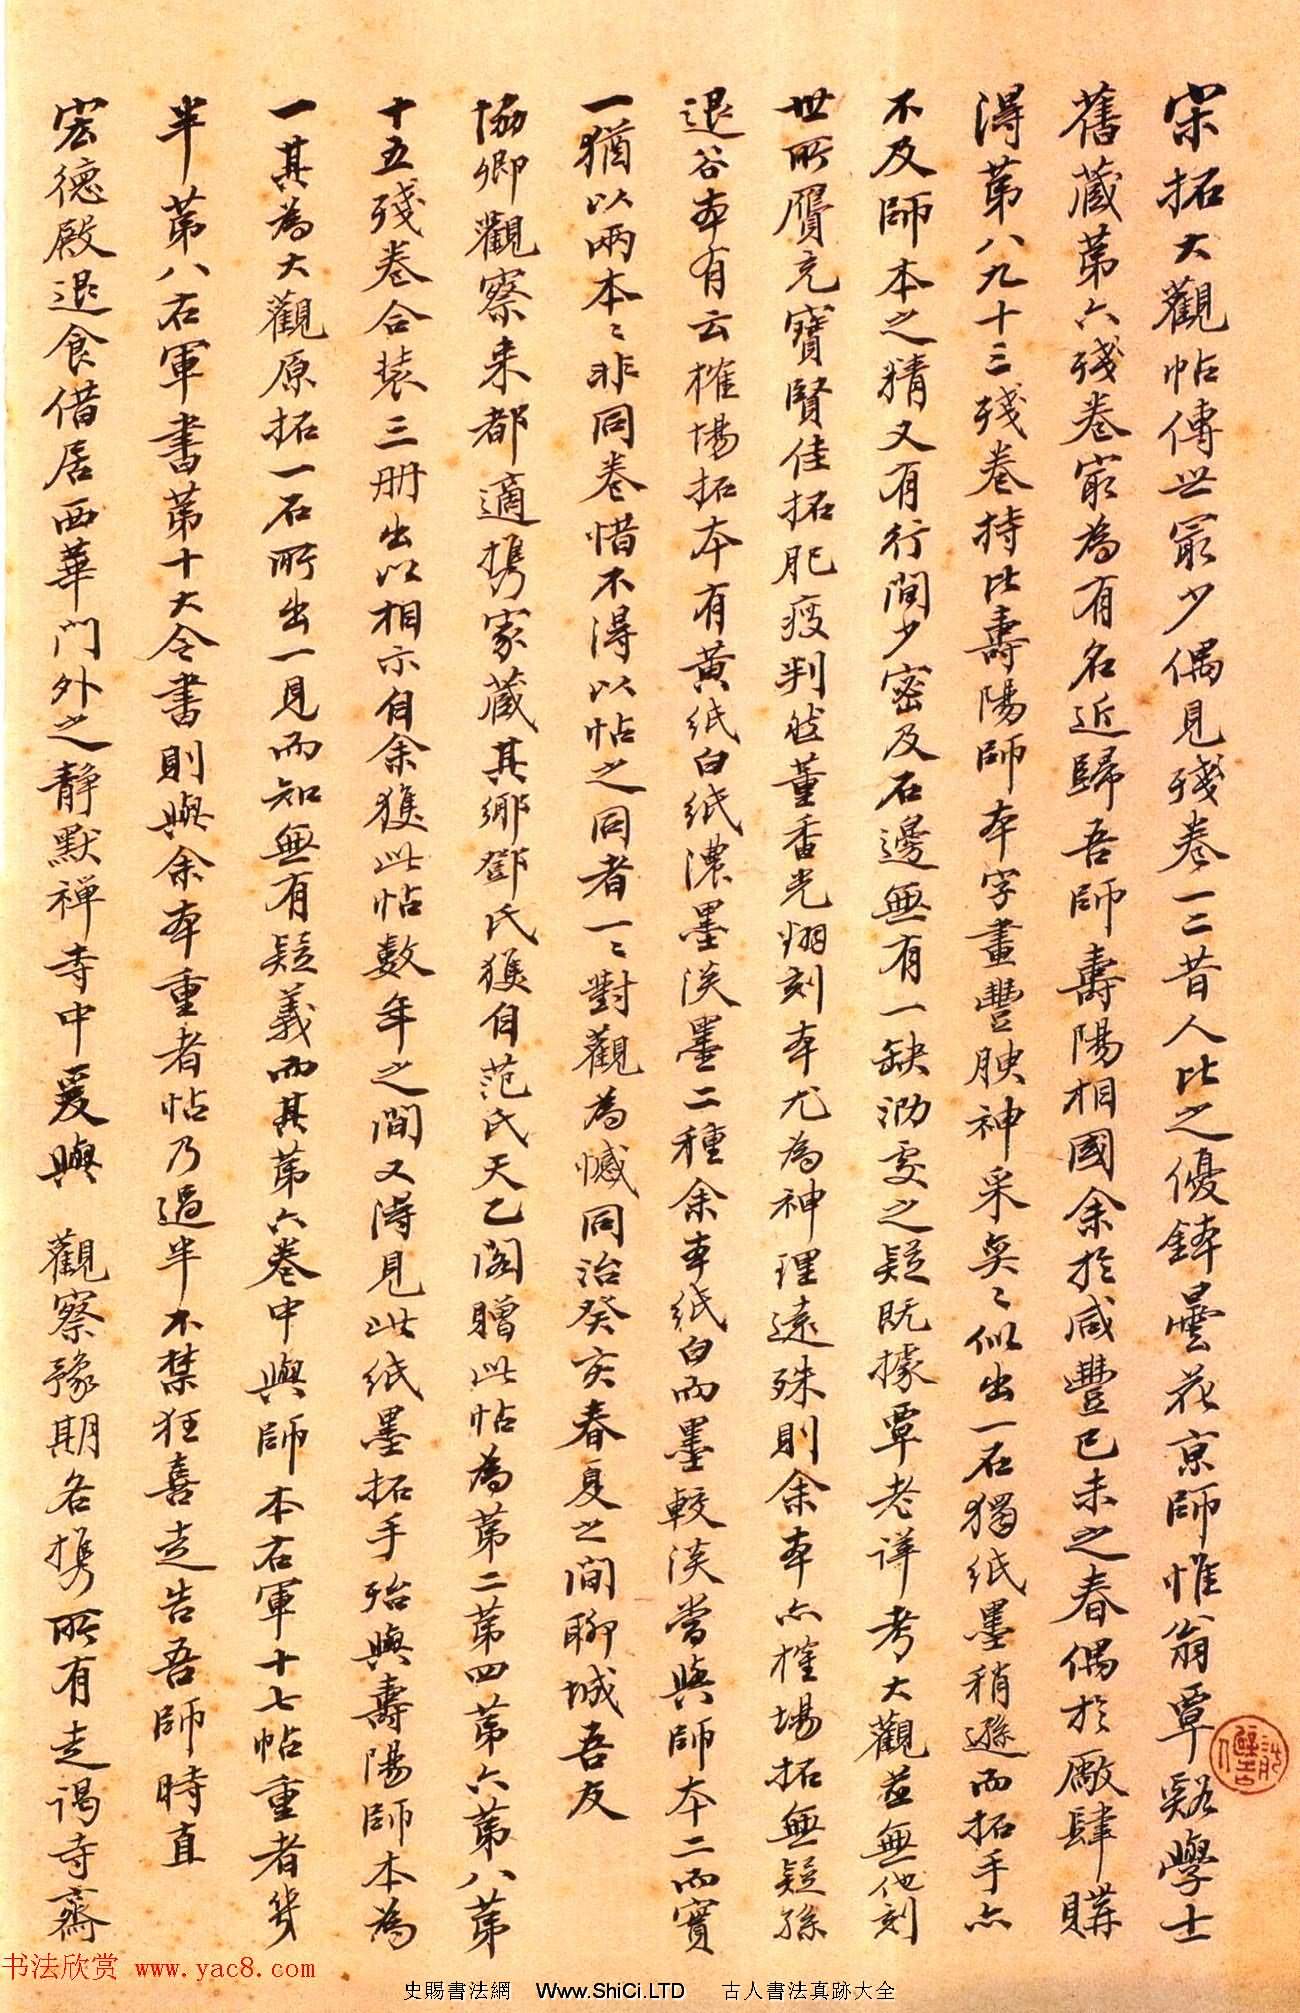 宋拓大觀帖傳世冣少偶見殘卷一二昔人比之優鉢曇花京師惟翁覃谿學士
舊藏第六殘卷冣為有名近歸吾師壽陽相國余於咸豐己未之春偶於廠肆購
得第八九十三殘卷持比壽陽師本字畫豐腴神采奕〻似出一石獨紙墨稍遜而拓手亦
不及師本之精又有行間少密及石邊無有一缺泐處之疑既據覃老詳考大觀並無他刻
世所贗充寶賢佳拓肥瘦判然董香光翻刻本尤為神理遠殊則余本亦榷場拓無疑孫
退谷本有云榷場拓本有黃紙白紙濃墨淡墨二種余本紙白而墨較淡當與師本二而實
一猶以兩本〻非同卷惜不得以帖之同者一〻對觀為憾同治癸亥春夏之間聊城吾友
協卿觀察來都適携家藏其鄉鄧氏獲自范氏天乙閣贈此帖為第二第四第六第八第
十五殘卷合裝三冊出以相示自余獲此帖數年之間又得見此紙墨拓手殆與壽陽師本為
一其為大觀原拓一石所出一見而知無有疑義而其第六卷中與師本右軍十七帖重者幾
半第八右軍書第十大令書則與余本重者帖乃過半不禁狂喜走告吾師時直
宏德殿退食借居西華門外之靜默禪寺中爰與 觀察豫期各携所有走謁寺齋
书法欣赏 www.yac8.com
史賜書法網 Www.ShiCi.LTD 古人書法真跡大全